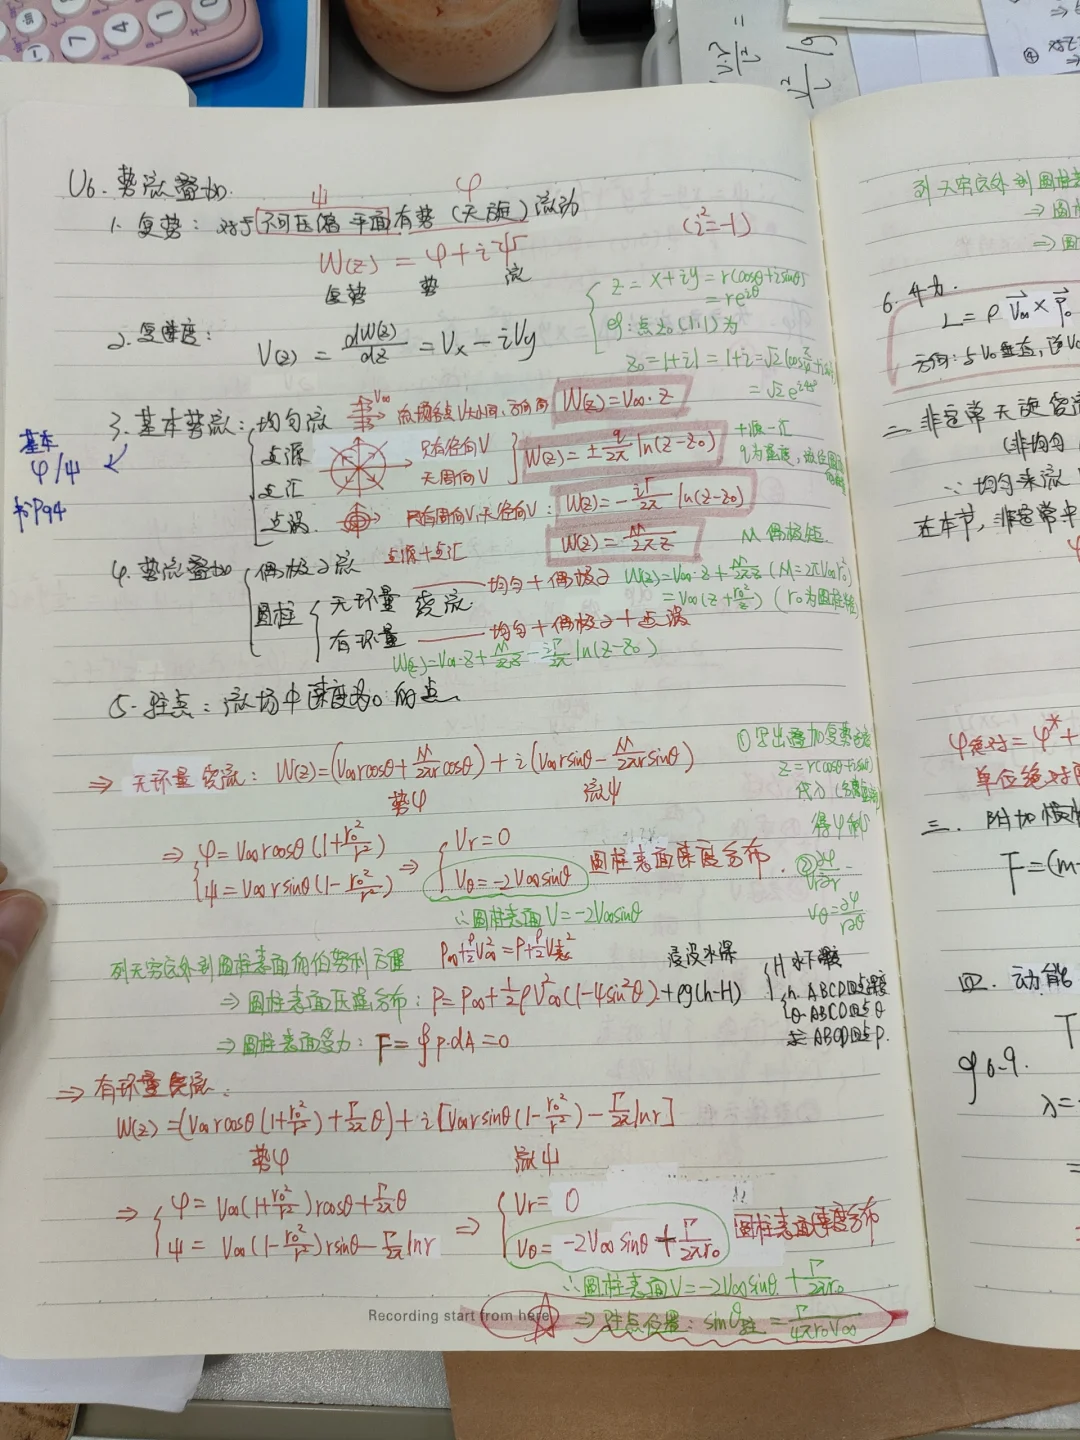 U6. 势流叠加.
ψ φ
1. 复势: 对于不可压缩平面有势(无旋)流动 (i²=-1)
W(z) = φ + iψ
复势 势 流
z = x+iy = r(cosθ+isinθ)
= re^{iθ}
eg: 点z₀(1,1)为
z₀=1+i1=1+i=√2(cos
= √2 e^{i45°}
2. 复速度:
V(z) = dW(z)/dz = Vx - iVy
3. 基本势流: 均匀流 V∞ 流场各点V大小同、方向同 W(z)=V∞·z
点源 只有径向V
点汇 无周向V W(z)= ± q/2π ln(z-z₀) +源-汇
q为强度,
点涡 只有周向V,无径向V: W(z)= - iΓ/2π ln(z-z₀)
W(z)= M/2πz M 偶极矩
基本
φ/ψ
书P94
4. 势流叠加 偶极子流 点源+点汇
圆柱 无环量 绕流 均匀+偶极子 W(z)=V∞·z+M/2πz (M=2πV∞r₀²)
= V∞(z+r₀²/z) (r₀为圆柱半径)
有环量 均匀+偶极子+点涡
W(z)=V∞·z+M/2πz - iΓ/2π ln(z-z₀)
5. 驻点: 流场中速度为0的点.
⇒ 无环量绕流: W(z)=(V∞rcosθ+M/2πr cosθ)+i(V∞rsinθ-M/2πr sinθ)
势φ 流ψ
①写出叠加复势方程
z=r(cosθ+isinθ)
代入
得φ和ψ
⇒ φ=V∞rcosθ(1+r₀²/r²)
ψ=V∞rsinθ(1-r₀²/r²) ⇒ Vr=0
Vθ=-2V∞sinθ 圆柱表面速度分布.
② ∂φ/∂r
Vθ=∂φ/r∂θ
∴圆柱表面V=-2V∞sinθ
列无穷远处到圆柱表面的伯努利方程 P∞+ρ/2V∞²=P+ρ/2V表²
⇒ 圆柱表面压强分布: P=P∞+1/2ρV∞²(1-4sin²θ)+ρg(h-H)
浸没水深
H 水下深度
h. ABCD四点深度
θ. ABCD四点θ
求ABCD四点P.
⇒ 圆柱表面受力: F=∮p·dA=0
⇒ 有环量绕流.
W(z)=(V∞rcosθ(1+r₀²/r²)+Γ/2π θ)+i[V∞rsinθ(1-r₀²/r²)-Γ/2π lnr]
势φ 流ψ
⇒ φ=V∞(1+r₀²/r²)rcosθ+Γ/2π θ
ψ=V∞(1-r₀²/r²)rsinθ-Γ/2π lnr
⇒ Vr=0
Vθ=-2V∞sinθ+Γ/2πr₀ 圆柱表面速度分布
∴圆柱表面V=-2V∞sinθ+Γ/2πr₀
Recording start from here
⇒ 驻点位置: sinθ驻=Γ/4πr₀V∞
列无穷远处到圆柱表
⇒ 圆
⇒ 圆
6. 升力.
L=ρ V∞ × Γ₀
方向: 与V₀垂直,
二. 非定常无旋
(非均匀
∵ 均匀来流
在本节, 非定常中
φ绝对=φ*+
单位绝对
三. 附加惯
F=(m
四. 动能
T
eg 6-9.
λ=